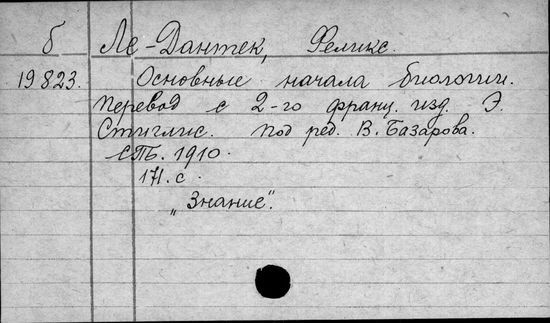 б Ле-Дантек, Феликс.
19823. Основные начала биологии.
Перевод с 2-го франц. изд. Э.
Стиглис. Под ред. В. Базарова.
СПБ. 1910.
171. с.
„Знание".